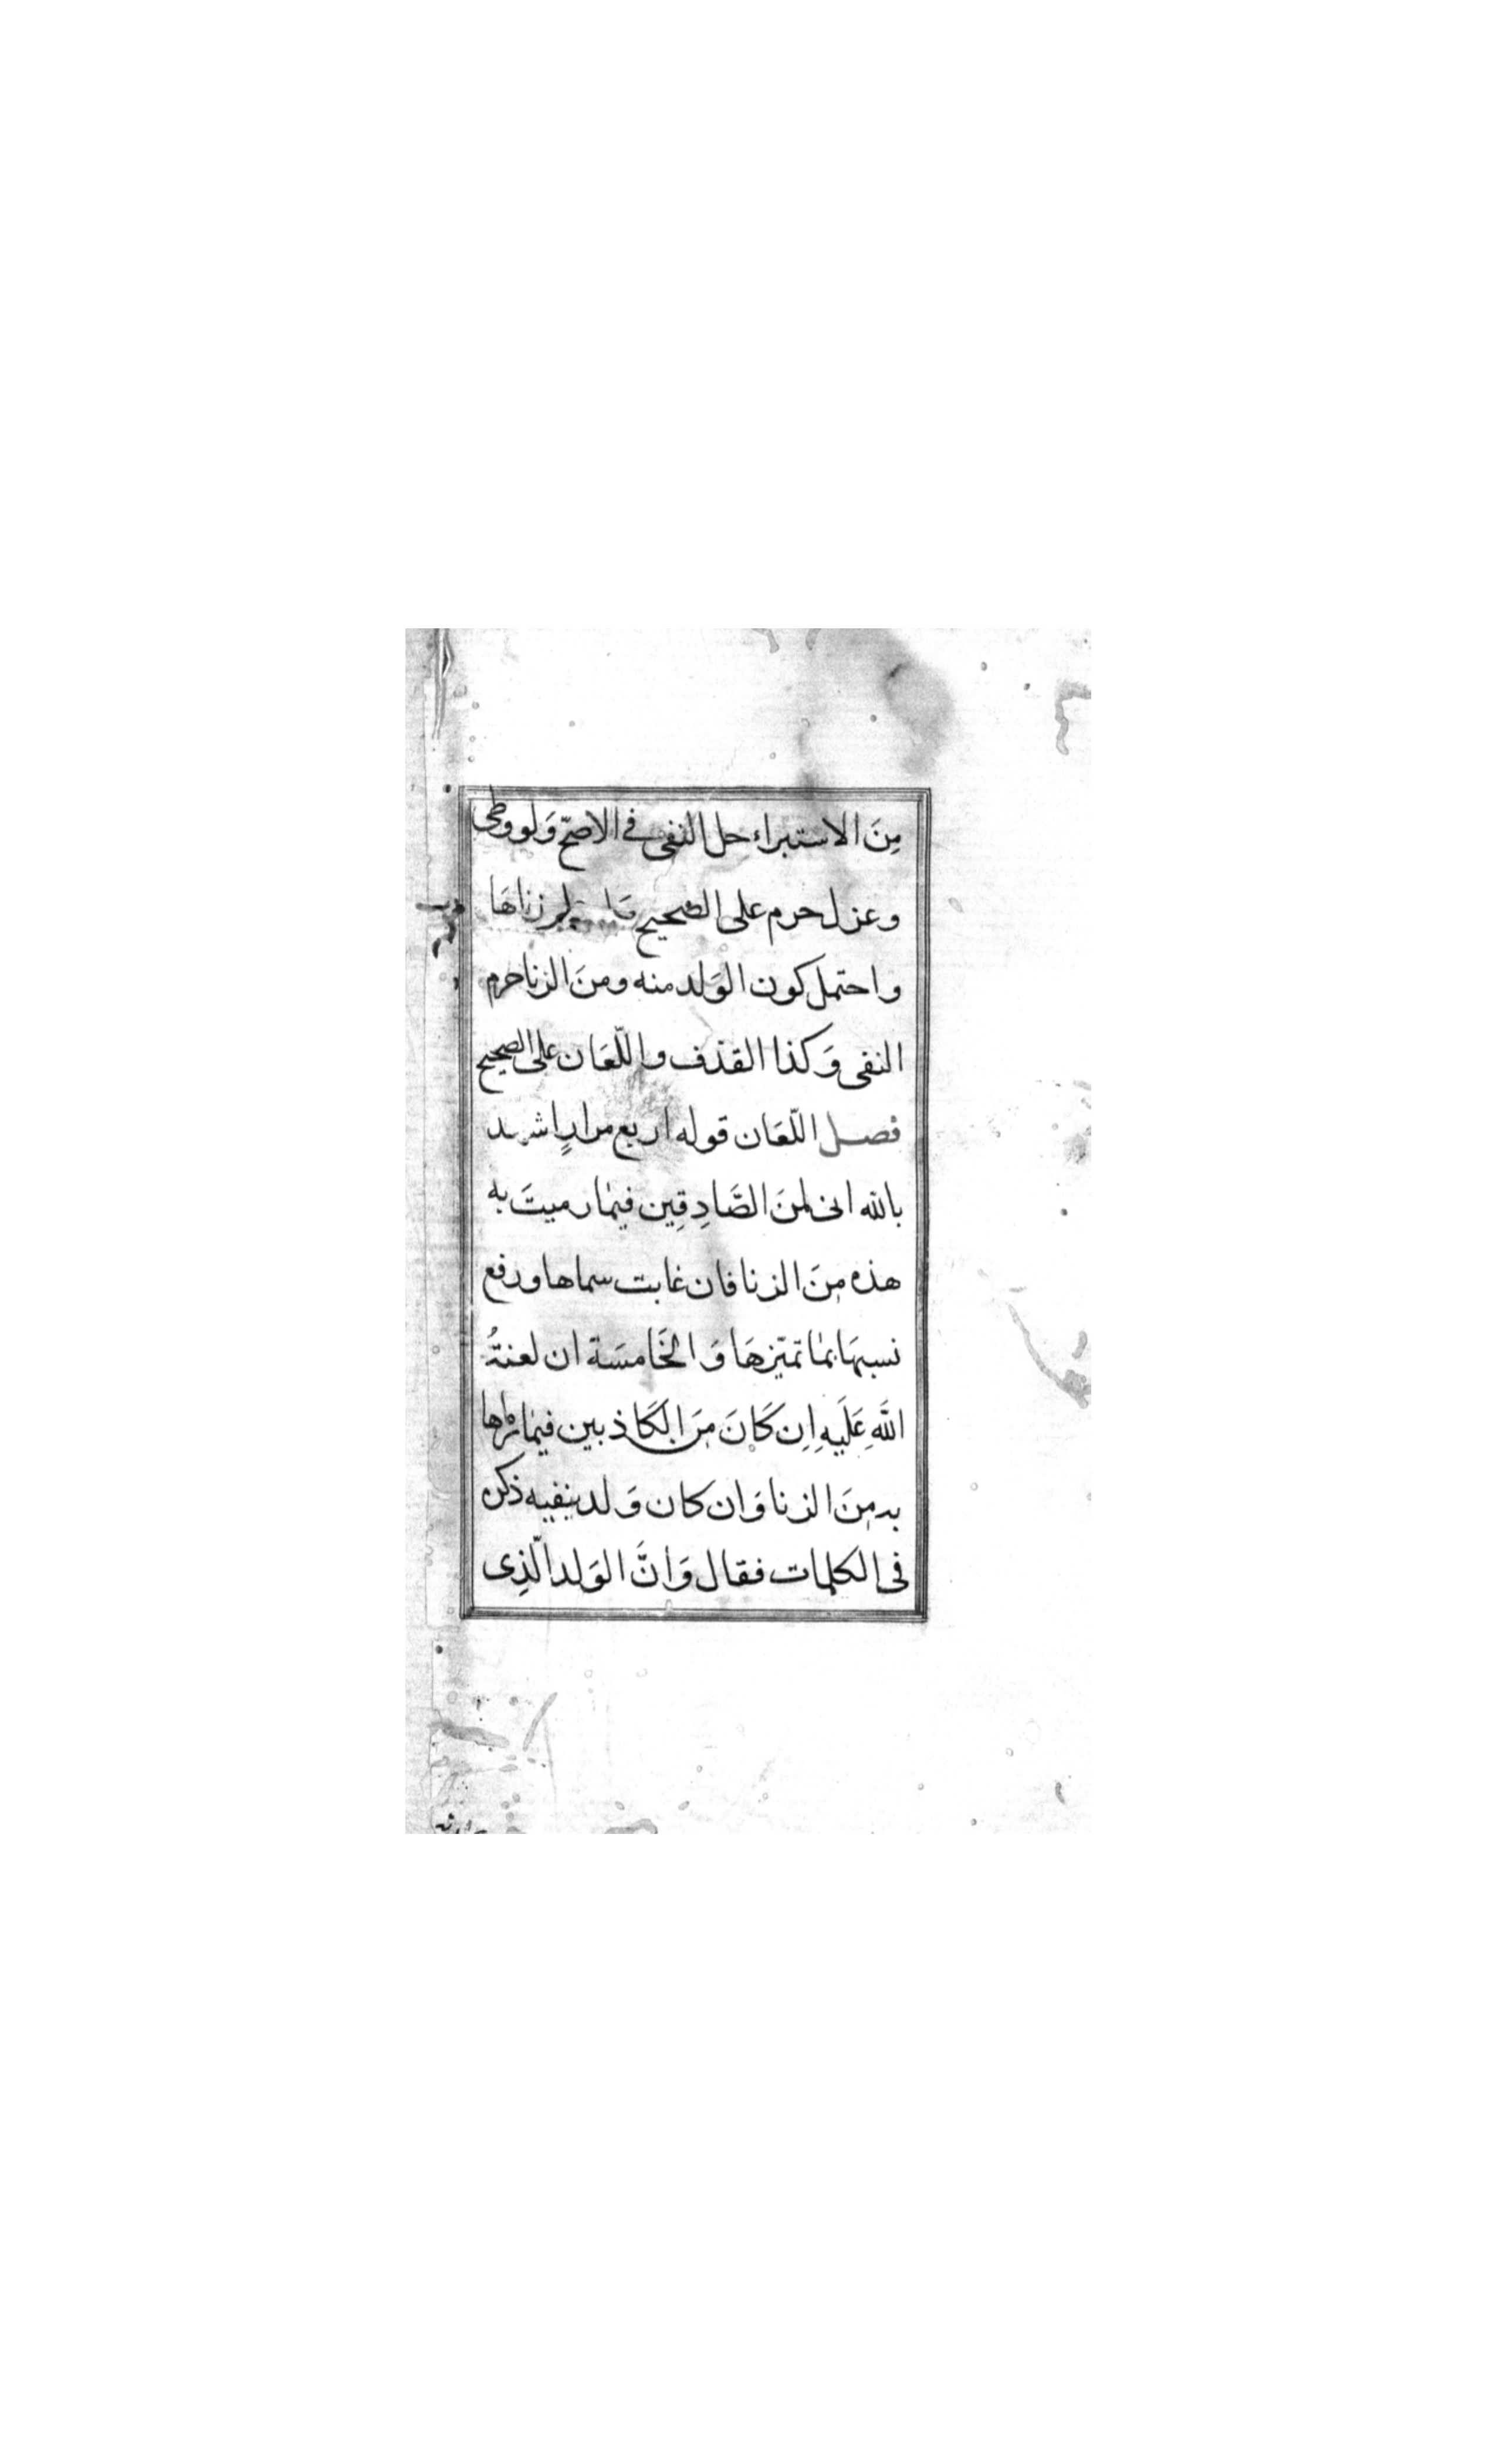 مِنَ الاستبراء حل النفى فى الاصحّ وَلو وطى
وعزل حرم على الصحيح زناهَا
واحتمل كون الوَلد منه ومنَ الزنا حرم
النفى وَكذا القذف واللّعَان على الصحيح
فصل اللّعَان قوله اربع مرارٍ اشهد
بالله انى لمنَ الصَّادِقِين فيمَا رميتَ به
هذه مِنَ الزنا فان غابت سماها ورفع
نسبهَا بمَا تميّزهَا وَالخَامسَة ان لعنةُ
اللَّهِ عَلَيهِ اِن كَانَ مِنَ الكَاذبين فيمَا رماها
به مِنَ الزنا وَان كان وَلد ينفيه ذكره
فى الكلمات فقال وَانَّ الوَلد الّذِى